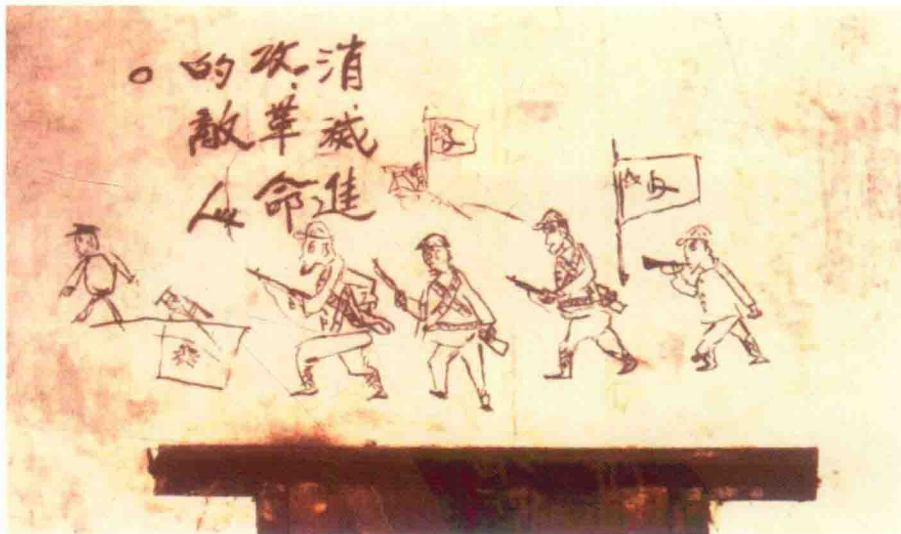 消滅進
攻革命
的敵人
。